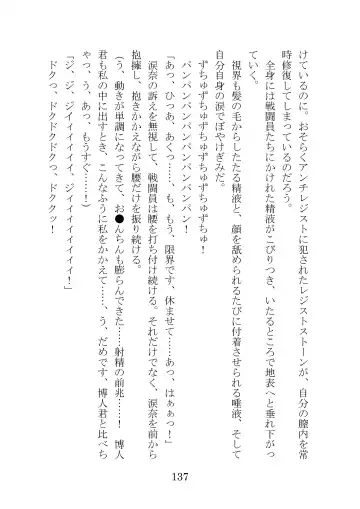 けているのに。おそらくアンチレジストに犯されたレジストストーンが、自分の膣内を常
時修復してしまっているのだろう。
全身には戦闘員たちにかけれた精液がこびりつき、いたるところで地表へと垂れ下がっ
ていく。
視界も髪の毛からしたたる精液と、顔を舐められるたびに付着させられる唾液、そして
自分自身の涙でぼやけぎみだ。
ずちゅずちゅずちゅずちゅずちゅずちゅ！
パンパンパンパンパンパン！
「あっ、ひっぁ、あくっ……、も、もう、限界です、休ませて……あっ、はぁぁっ！」
涙奈の訴えを無視して、戦闘員は腰を打ち付け続ける。それだけでなく、涙奈を前から
抱擁し、抱きかかえながら腰だけを振り続ける。
（う、動きが単調になってきて、お●んちんも膨らんできた……射精の前兆……！　博人
君も私の中に出すとき、こんなふうに私をかかえて……、う、だめです、博人君と比べち
ゃっ、う、あっ、もうすぐ……！）
「ジ、ジ、ジイィイイイイ、ジイィイイイイイイ！」
ドクっ、ドクドクドクっ、ドククッ！
137